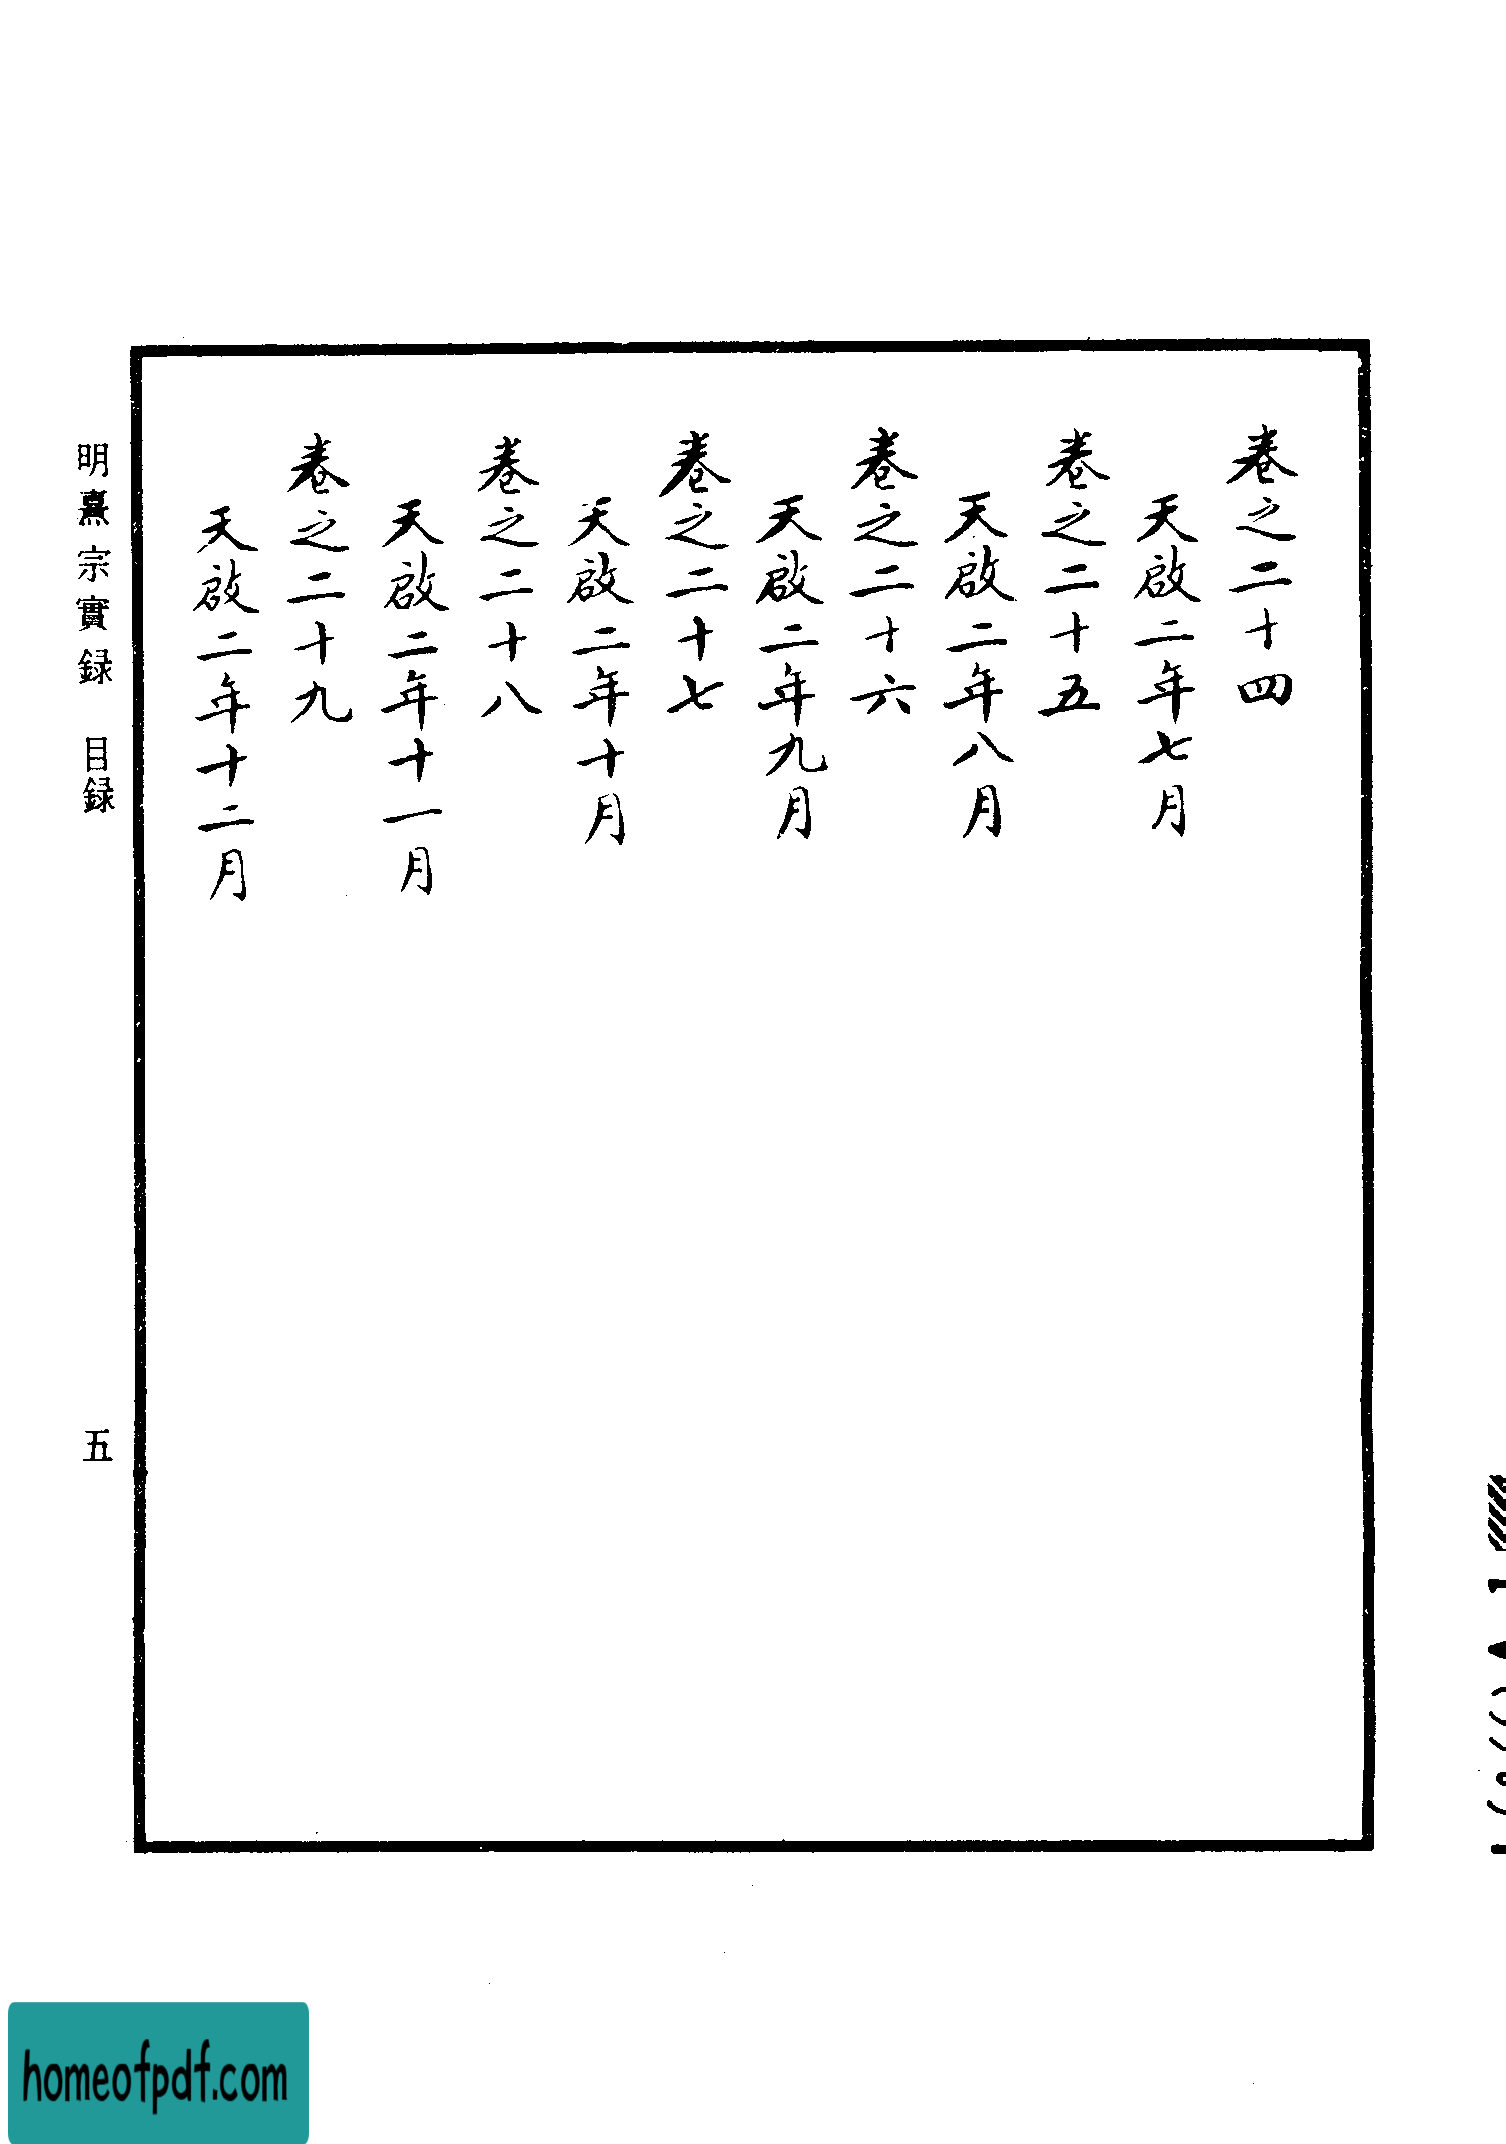 卷之二十四
天啟二年七月
卷之二十五
天啟二年八月
卷之二十六
天啟二年九月
卷之二十七
天啟二年十月
卷之二十八
天啟二年十一月
卷之二十九
天啟二年十二月
明熹宗實録 目録
五
homeofpdf.com